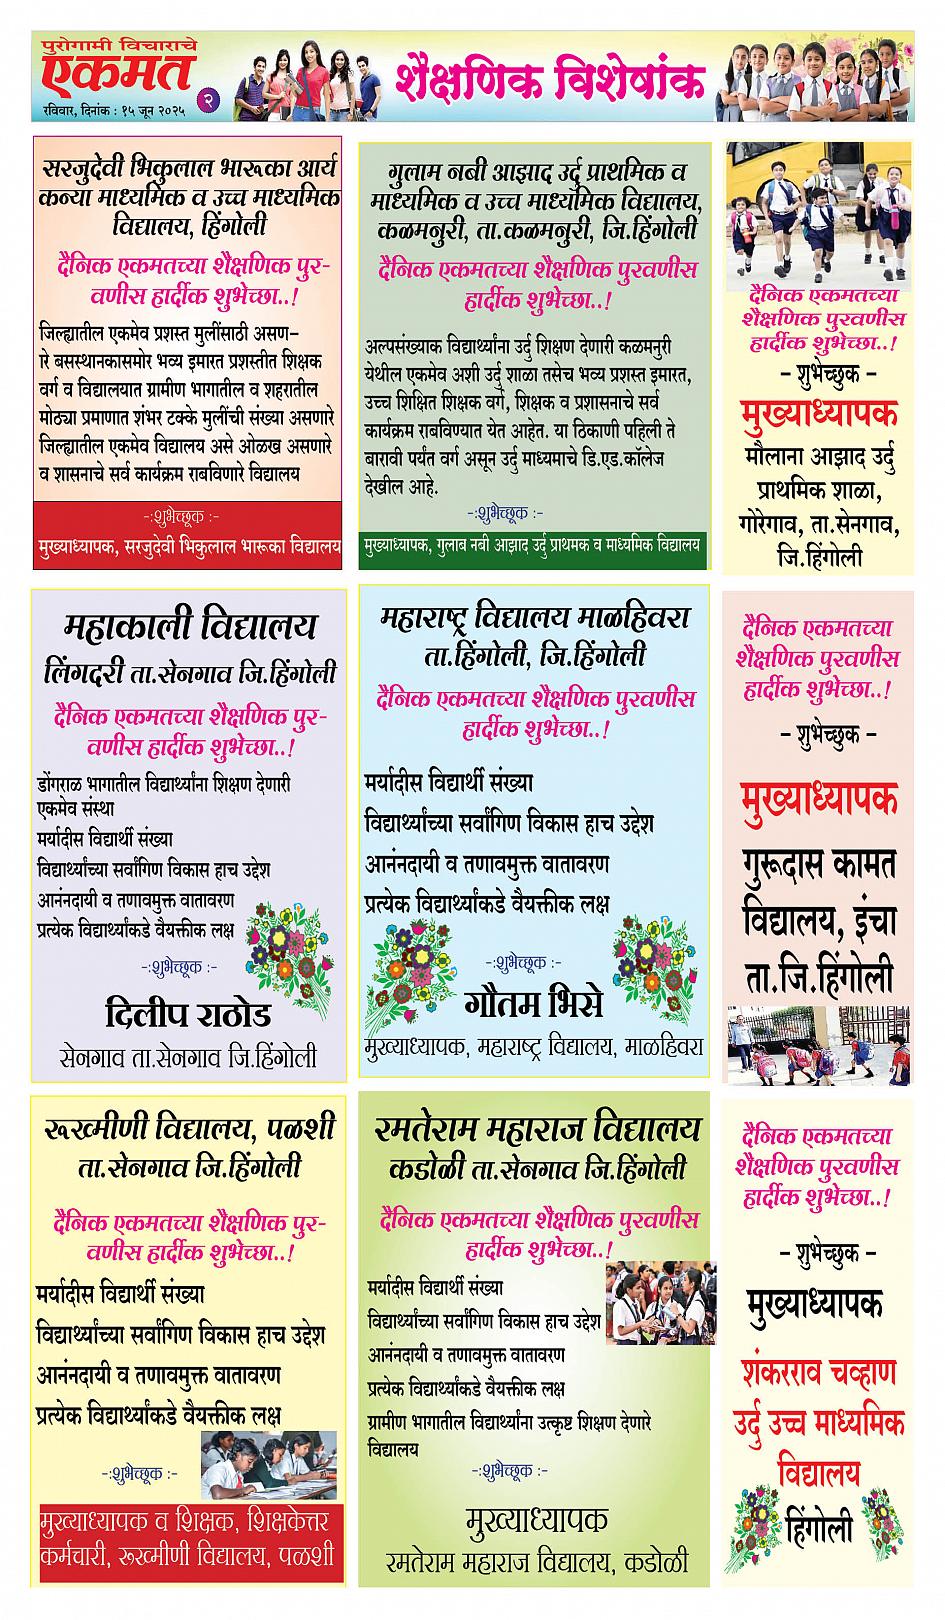 पुरोगामी विचाराचे
एकमत
रविवार, दिनांक : १५ जून २०२५
२
शैक्षणिक विशेषांक
सरजुदेवी भिकुलाल भारूका आर्य
कन्या माध्यमिक व उच्च माध्यमिक
विद्यालय, हिंगोली
दैनिक एकमतच्या शैक्षणिक पुर-
वणीस हार्दीक शुभेच्छा..!
जिल्ह्यातील एकमेव प्रशस्त मुलींसाठी असण-
रे बसस्थानकासमोर भव्य इमारत प्रशस्तीत शिक्षक
वर्ग व विद्यालयात ग्रामीण भागातील व शहरातील
मोठ्या प्रमाणात शंभर टक्के मुलींची संख्या असणारे
जिल्ह्यातील एकमेव विद्यालय असे ओळख असणारे
व शासनाचे सर्व कार्यक्रम राबविणारे विद्यालय
-:शुभेच्छूक :-
मुख्याध्यापक, सरजुदेवी भिकुलाल भारूका विद्यालय
गुलाम नबी आझाद उर्दु प्राथमिक व
माध्यमिक व उच्च माध्यमिक विद्यालय,
कळमनुरी, ता.कळमनुरी, जि.हिंगोली
दैनिक एकमतच्या शैक्षणिक पुरवणीस
हार्दीक शुभेच्छा..!
अल्पसंख्याक विद्यार्थ्यांना उर्दु शिक्षण देणारी कळमनुरी
येथील एकमेव अशी उर्दु शाळा तसेच भव्य प्रशस्त इमारत,
उच्च शिक्षित शिक्षक वर्ग, शिक्षक व प्रशासनाचे सर्व
कार्यक्रम राबविण्यात येत आहेत. या ठिकाणी पहिली ते
बारावी पर्यंत वर्ग असून उर्दु माध्यमाचे डि.एड.कॉलेज
देखील आहे.
-:शुभेच्छूक :-
मुख्याध्यापक, गुलाब नबी आझाद उर्दु प्राथमक व माध्यमिक विद्यालय
दैनिक एकमतच्या
शैक्षणिक पुरवणीस
हार्दीक शुभेच्छा..!
- शुभेच्छुक -
मुख्याध्यापक
मौलाना आझाद उर्दु
प्राथमिक शाळा,
गोरेगाव, ता.सेनगाव,
जि.हिंगोली
महाकाली विद्यालय
लिंगदरी ता.सेनगाव जि.हिंगोली
दैनिक एकमतच्या शैक्षणिक पुर-
वणीस हार्दीक शुभेच्छा..!
डोंगराळ भागातील विद्यार्थ्यांना शिक्षण देणारी
एकमेव संस्था
मर्यादीस विद्यार्थी संख्या
विद्यार्थ्यांच्या सर्वांगिण विकास हाच उद्देश
आनंनदायी व तणावमुक्त वातावरण
प्रत्येक विद्यार्थ्यांकडे वैयक्तीक लक्ष
-:शुभेच्छूक :-
दिलीप राठोड
सेनगाव ता.सेनगाव जि.हिंगोली
महाराष्ट्र विद्यालय माळहिवरा
ता.हिंगोली, जि.हिंगोली
दैनिक एकमतच्या शैक्षणिक पुरवणीस
हार्दीक शुभेच्छा..!
मर्यादीस विद्यार्थी संख्या
विद्यार्थ्यांच्या सर्वांगिण विकास हाच उद्देश
आनंनदायी व तणावमुक्त वातावरण
प्रत्येक विद्यार्थ्यांकडे वैयक्तीक लक्ष
-:शुभेच्छूक :-
गौतम भिसे
मुख्याध्यापक, महाराष्ट्र विद्यालय, माळहिवरा
दैनिक एकमतच्या
शैक्षणिक पुरवणीस
हार्दीक शुभेच्छा..!
- शुभेच्छुक -
मुख्याध्यापक
गुरूदास कामत
विद्यालय, इंचा
ता.जि.हिंगोली
रूख्मीणी विद्यालय, पळशी
ता.सेनगाव जि.हिंगोली
दैनिक एकमतच्या शैक्षणिक पुर-
वणीस हार्दीक शुभेच्छा..!
मर्यादीस विद्यार्थी संख्या
विद्यार्थ्यांच्या सर्वांगिण विकास हाच उद्देश
आनंनदायी व तणावमुक्त वातावरण
प्रत्येक विद्यार्थ्यांकडे वैयक्तीक लक्ष
-:शुभेच्छूक :-
मुख्याध्यापक व शिक्षक, शिक्षकेत्तर
कर्मचारी, रूख्मीणी विद्यालय, पळशी
रमतेराम महाराज विद्यालय
कडोळी ता.सेनगाव जि.हिंगोली
दैनिक एकमतच्या शैक्षणिक पुरवणीस
हार्दीक शुभेच्छा..!
मर्यादीस विद्यार्थी संख्या
विद्यार्थ्यांच्या सर्वांगिण विकास हाच उद्देश
आनंनदायी व तणावमुक्त वातावरण
प्रत्येक विद्यार्थ्यांकडे वैयक्तीक लक्ष
ग्रामीण भागातील विद्यार्थ्यांना उत्कृष्ट शिक्षण देणारे
विद्यालय
-:शुभेच्छूक :-
मुख्याध्यापक
रमतेराम महाराज विद्यालय, कडोळी
दैनिक एकमतच्या
शैक्षणिक पुरवणीस
हार्दीक शुभेच्छा..!
- शुभेच्छुक -
मुख्याध्यापक
शंकरराव चव्हाण
उर्दु उच्च माध्यमिक
विद्यालय
हिंगोली